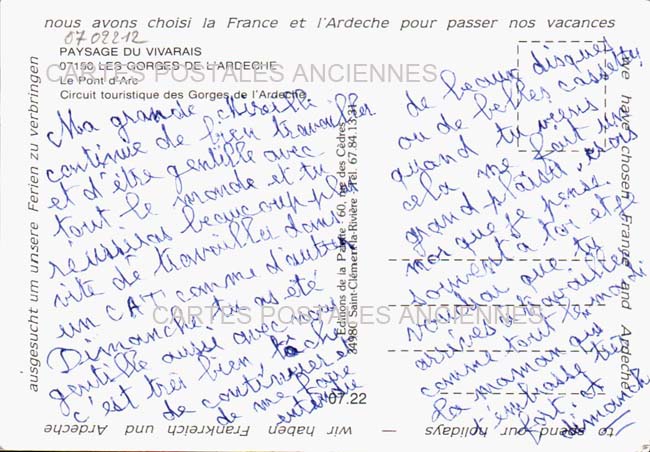 nous avons choisi la France et l'Ardeche pour passer nos vacances
0702212
PAYSAGE DU VIVARAIS
07150 LES GORGES DE L'ARDECHE
CARTES POSTALES ANCIENNES
Le Pont d'Arc
Circuit touristique des Gorges de l'Ardeche
Ma grande
continue de bien travailler
et d'être gentille avec
tout le monde et tu
réussiras beaucoup plus
vite de travailler dans
un CAT comme d'autres
Dimanche tu as été
gentille aussi avec
c'est très bien
de continuer et
de me faire
de beaux disques
ou de belles cassettes
quand tu viens
cela me fait un
grand plaisir crois
moi que je pense
souvent a toi et je
voudrai que tu
arrives a travailler
comme tout le monde
La maman qui
t'embrasse très
fort et
dimanche
CARTES POSTALES ANCIENNES
Editions de la Palette - 60, rue des Cèdres
34980 Saint-Clément-la-Rivière - Tél. 67.84.13.31
07.22
we have chosen France and Ardeche
to spend our holidays
— wir haben Frankreich und Ardeche
ausgesucht um unsere Ferien zu verbringen